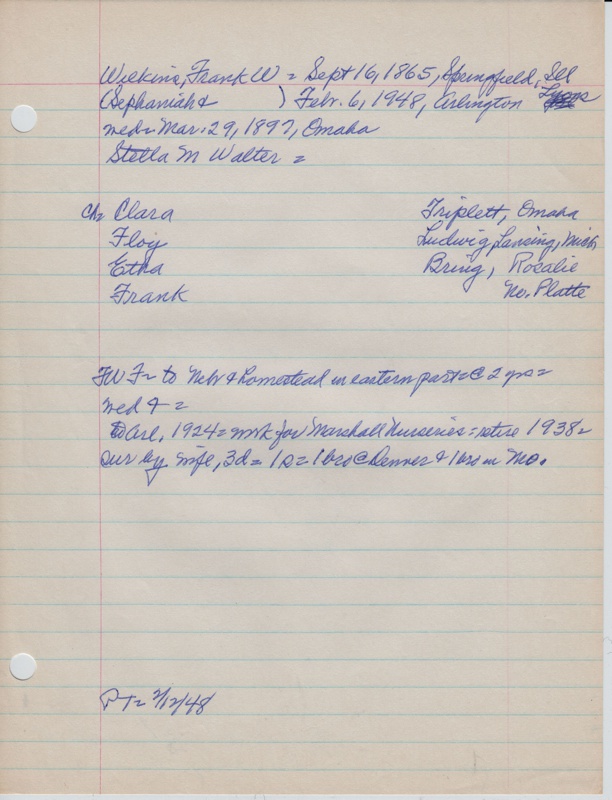 Wilkins, Frank W = Sept 16, 1865, Springfield, Ill
(Sephaniah & ) Febr. 6, 1948, Arlington
wed = Mar. 29, 1897, Omaha
Stella M Walter =
Ch = Clara Triplett, Omaha
Floy Ludwig, Lansing, Mich
Etha Bring, Rosalie
Frank No. Platte
to Nebr & homestead in eastern part = @ 2 yrs =
wed & =
to Arl, 1924 = work for Marshall Nurseries = retire 1938 =
sur by wife, 3d = 1s = 1 bro @ Denver & 1 bro in Mo.
PT = 2/12/48